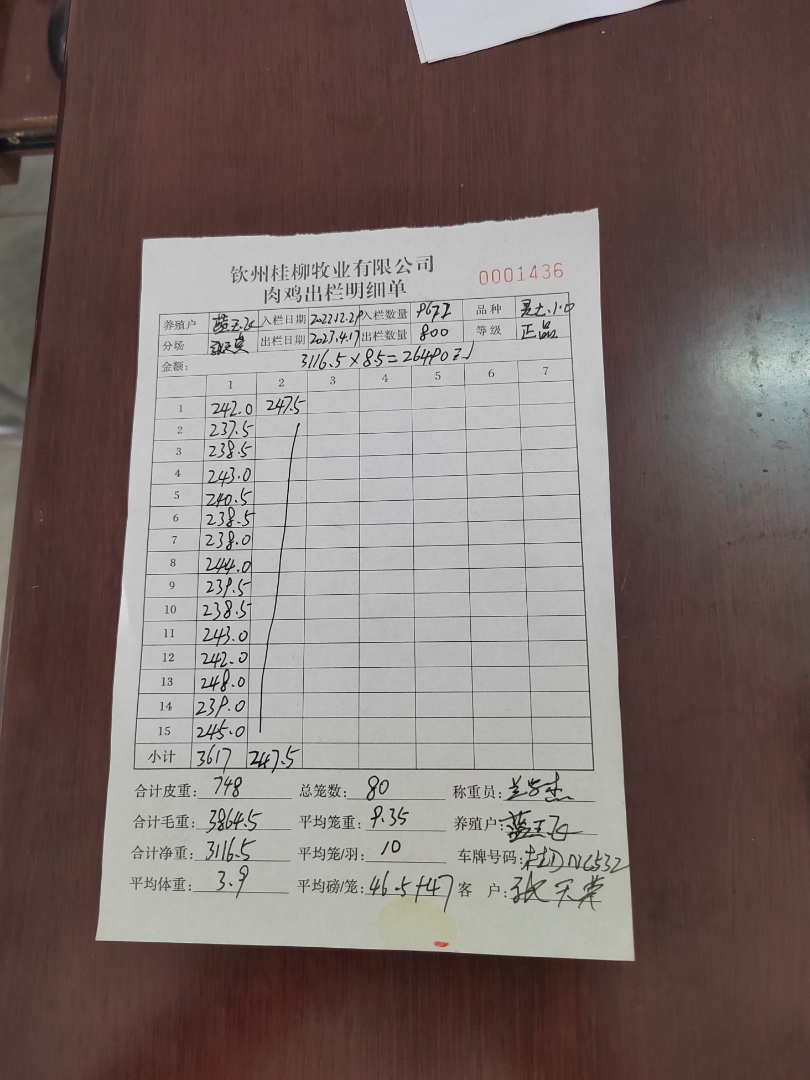 钦州桂柳牧业有限公司
肉鸡出栏明细单
0001436
养殖户 入栏日期 2022.12.29 入栏数量 品种
分场 出栏日期 2023.4.17 出栏数量 800 等级 正品
金额: 3116.5×8.5=26490元
1 2 3 4 5 6 7
1 242.0 247.5
2 237.5
3 238.5
4 243.0
5 240.5
6 238.5
7 238.0
8 244.0
9 239.5
10 238.5
11 243.0
12 242.0
13 248.0
14 239.0
15 245.0
小计 3617 247.5
合计皮重: 748 总笼数: 80 称重员:
合计毛重: 3864.5 平均笼重: 9.35 养殖户:
合计净重: 3116.5 平均笼/羽: 10 车牌号码: 桂DN6532
平均体重: 3.9 平均磅/笼: 46.5+47 客 户: 张天